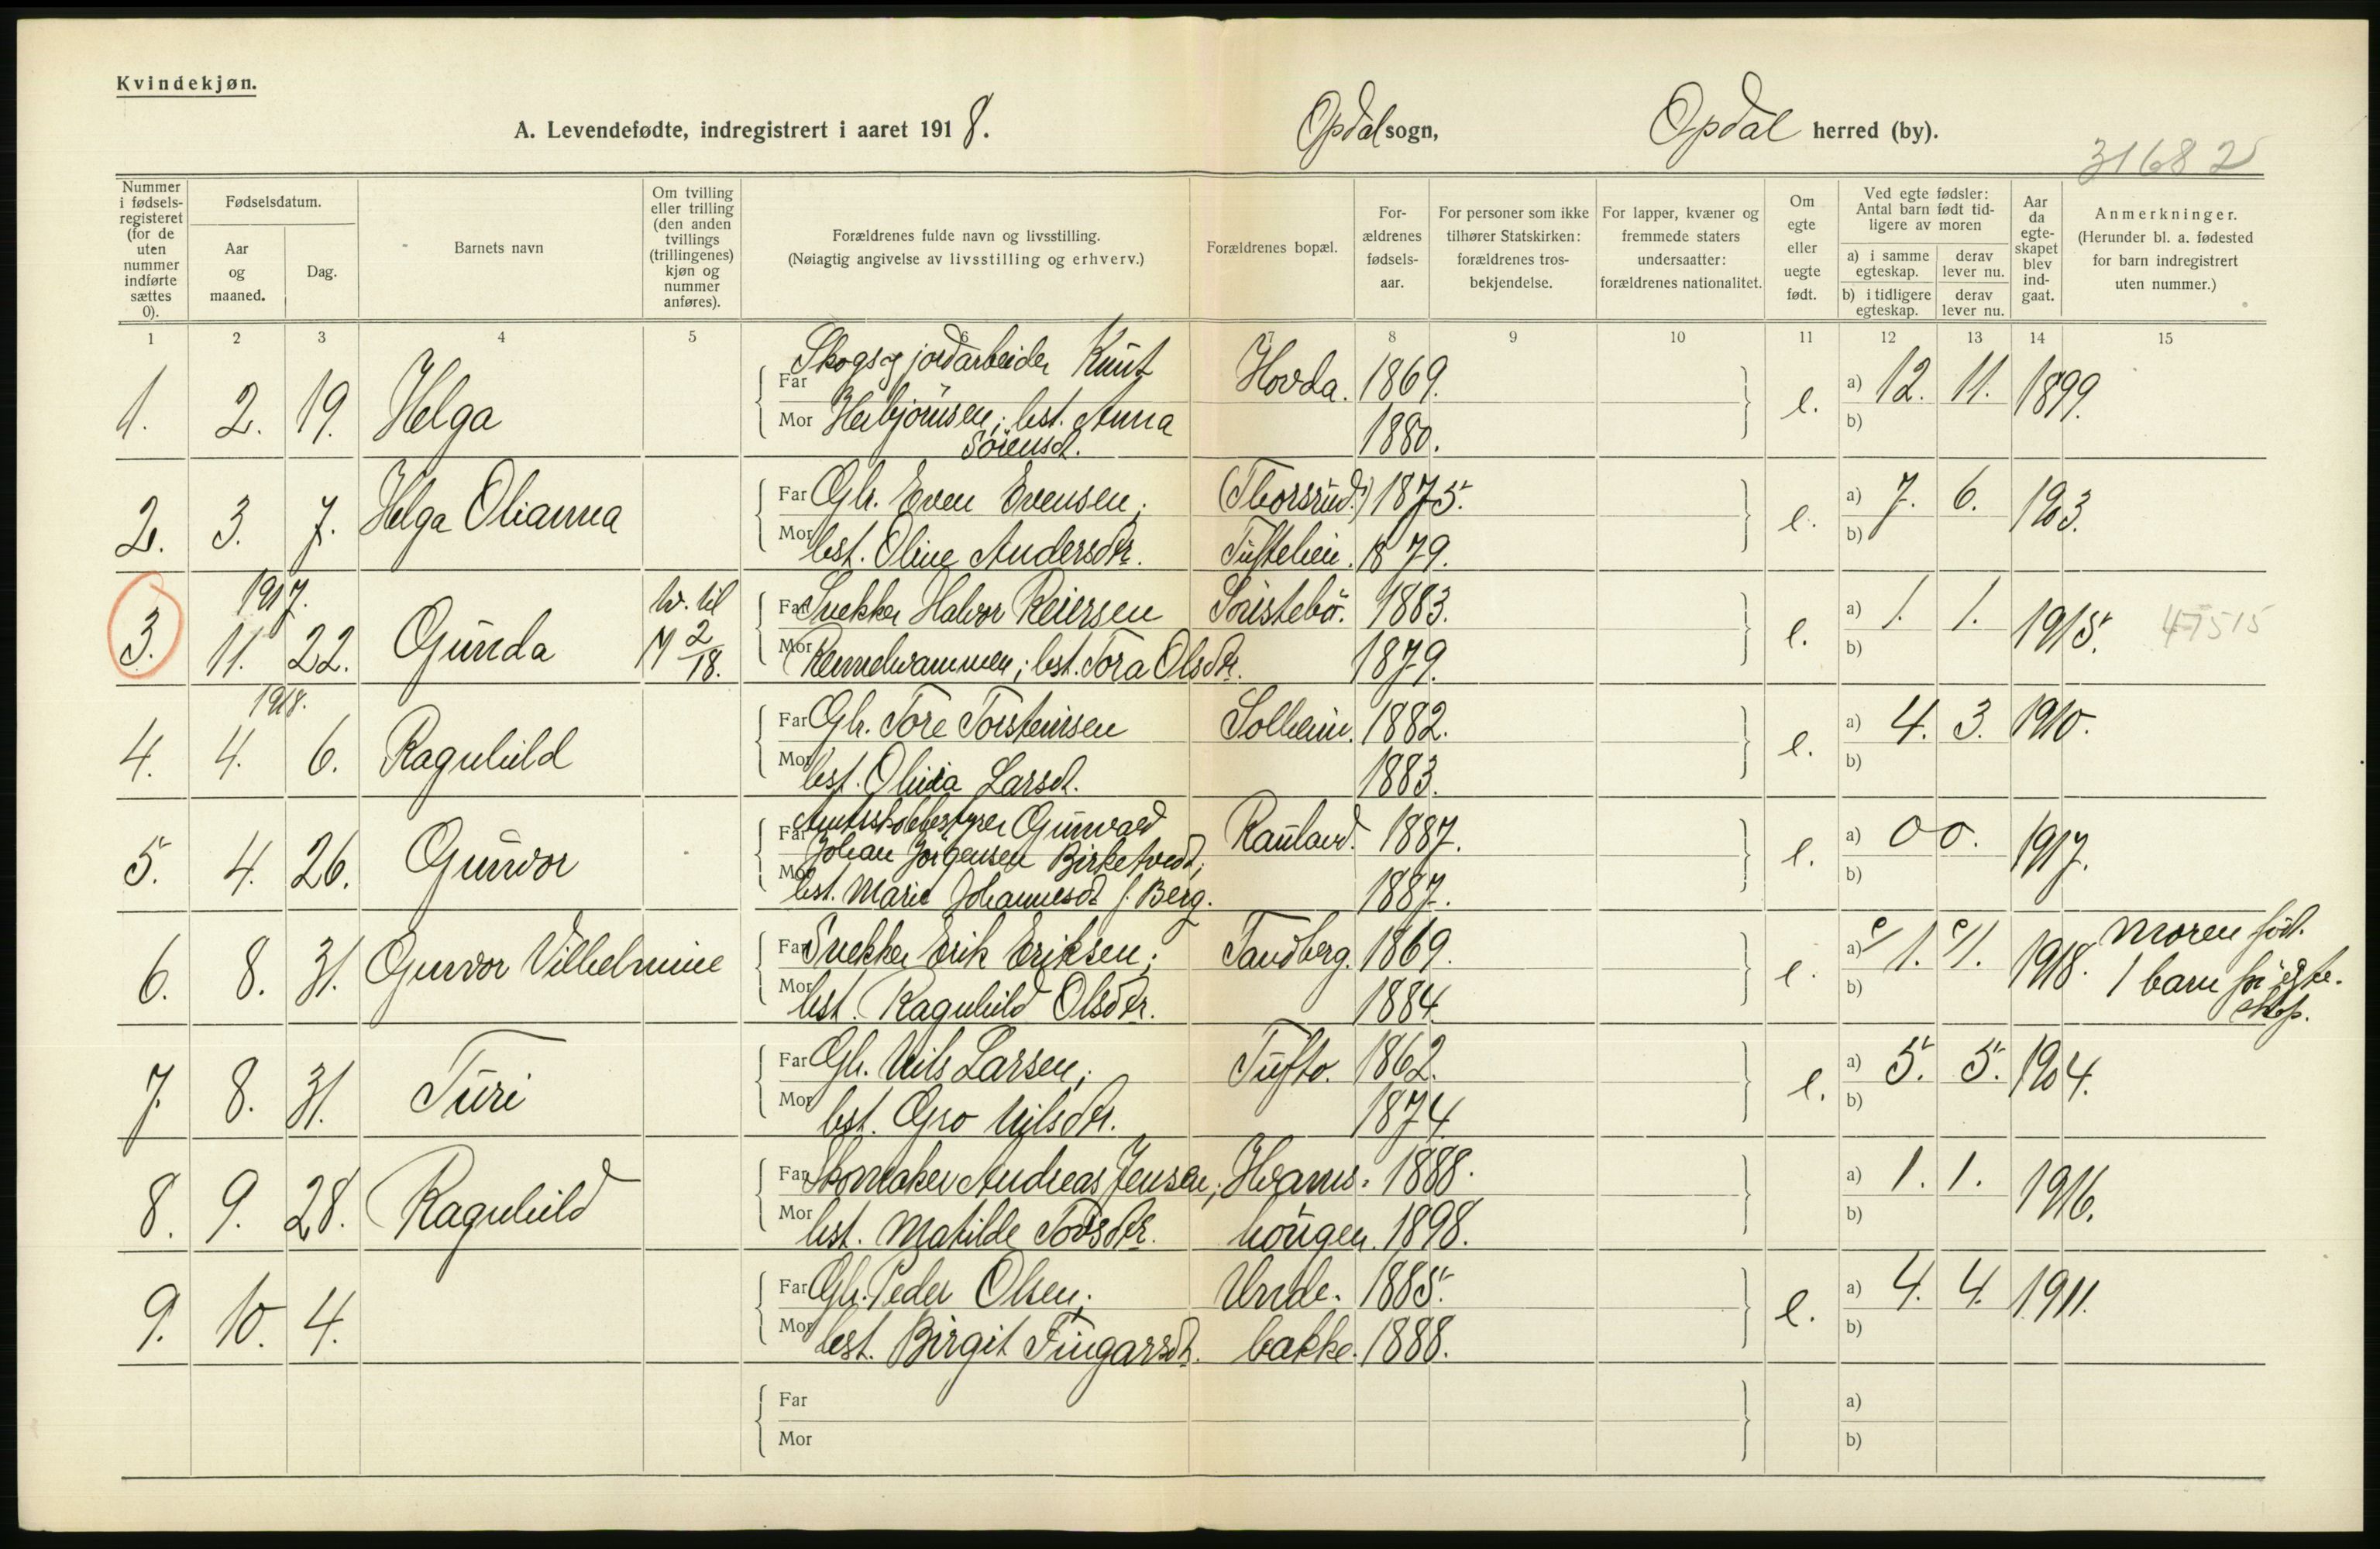 Kvindekjøn.
A. Levendefødte, indregistrert i aaret 1918. Opdal sogn, Opdal herred (by).
31682
Nummer i fødsels-registeret (for de uten nummer indførte sættes 0).
Fødselsdatum.
Aar og maaned.
Dag.
Barnets navn
Om tvilling eller trilling (den anden tvillings (trillingenes) kjøn og nummer anføres).
Forældrenes fulde navn og livsstilling.
(Nøiagtig angivelse av livsstilling og erhverv.)
Forældrenes bopæl.
For-ældrenes fødsels-aar.
For personer som ikke tilhører Statskirken: forældrenes tros-bekjendelse.
For lapper, kvæner og fremmede staters undersaatter: forældrenes nationalitet.
Om egte eller uegte født.
Ved egte fødsler: Antal barn født tid-ligere av moren
a) i samme egteskap. derav lever nu.
b) i tidligere egteskap. derav lever nu.
Aar da egte-skapet blev ind-gaat.
Anmerkninger.
(Herunder bl. a. fødested for barn indregistrert uten nummer.)
1 2 3 4 5 6 7 8 9 10 11 12 13 14 15
1. 2. 19. Helga Far Skogs og jordarbeider Knut Hovda. 1869. e. a) 12. 11. 1899.
Mor Herbjørnsen; hst. Anna 1880. b)
Sörensd.
2. 3. 7. Helga Olianna Far Gbr. Even Evensen; (Thorsrud.) 1875. e. a) 7. 6. 1903.
Mor hst. Oline Andersdtr. Tüftelien. 1879. b)
1917.
3. 11. 22. Günda tv. til M 2/18. Far Snekker Halvor Reiersen 1883. e. a) 1. 1. 1915. 47515
Mor hst. Tora Olsdtr. 1879. b)
1918.
4. 4. 6. Ragnhild Far Gbr. Tore Torsteinsen Solheim. 1882. e. a) 4. 3. 1910.
Mor hst. Olivia Larsd. 1883. b)
5. 4. 26. Günvor Far Amtsskolebestyrer Günvald Rauland. 1887. e. a) 0 0. 1917.
Johan Jörgensen Birketvedt;
Mor hst. Marie Johannesd. f. Berg. 1887. b)
6. 8. 31. Gunvor Vilhelmine Far Snekker Erik Eriksen; Sandberg. 1869. e. a) 1. 1. 1918. Moren föd.
Mor hst. Ragnhild Olsdtr. 1884. b) 1 barn för egte-
skap.
7. 8. 31. Türi Far Gbr. Nils Larsen; Tüfto. 1862. e. a) 5. 5. 1904.
Mor hst. Gro Nilsdtr. 1874. b)
8. 9. 28. Ragnhild Far Skomaker Andreas Jensen; Hvams- 1888. a) 1. 1. 1916.
Mor hst. Matilde Torsdtr. haugen. 1898. b)
9. 10. 4. Far Gbr. Peder Olsen; Unde- 1885. e. a) 4. 4. 1911.
Mor hst. Birgit Fingarsd. bakke. 1888. b)
Far a)
Mor b)